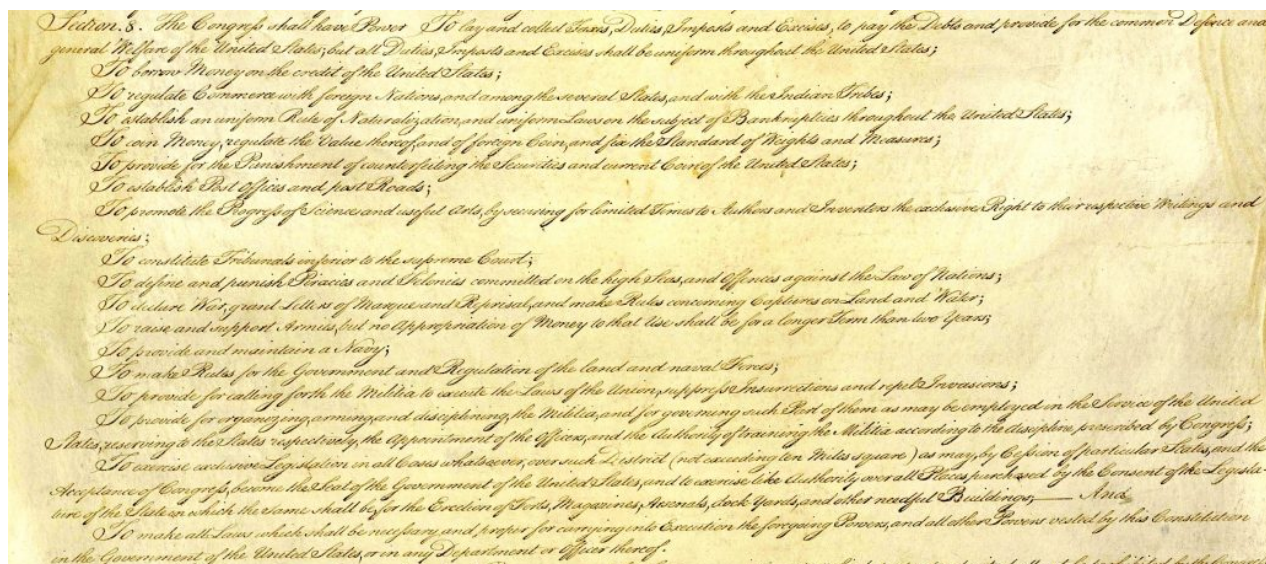 Section. 8. The Congress shall have Power To lay and collect Taxes, Duties, Imposts and Excises, to pay the Debts and provide for the common Defence and
general Welfare of the United States; but all Duties, Imposts and Excises shall be uniform throughout the United States;
To borrow Money on the credit of the United States;
To regulate Commerce with foreign Nations, and among the several States, and with the Indian Tribes;
To establish an uniform Rule of Naturalization, and uniform Laws on the subject of Bankruptcies throughout the United States;
To coin Money, regulate the Value thereof, and of foreign Coin, and fix the Standard of Weights and Measures;
To provide for the Punishment of counterfeiting the Securities and current Coin of the United States;
To establish Post Offices and post Roads;
To promote the Progress of Science and useful Arts, by securing for limited Times to Authors and Inventors the exclusive Right to their respective Writings and
Discoveries;
To constitute Tribunals inferior to the supreme Court;
To define and punish Piracies and Felonies committed on the high Seas, and Offences against the Law of Nations;
To declare War, grant Letters of Marque and Reprisal, and make Rules concerning Captures on Land and Water;
To raise and support Armies, but no Appropriation of Money to that Use shall be for a longer Term than two Years;
To provide and maintain a Navy;
To make Rules for the Government and Regulation of the land and naval Forces;
To provide for calling forth the Militia to execute the Laws of the Union, suppress Insurrections and repel Invasions;
To provide for organizing, arming, and disciplining, the Militia, and for governing such Part of them as may be employed in the Service of the United
States, reserving to the States respectively, the Appointment of the Officers, and the Authority of training the Militia according to the discipline prescribed by Congress;
To exercise exclusive Legislation in all Cases whatsoever, over such District (not exceeding ten Miles square) as may, by Cession of particular States, and the
Acceptance of Congress, become the Seat of the Government of the United States, and to exercise like Authority over all Places purchased by the Consent of the Legisla-
ture of the State in which the Same shall be, for the Erection of Forts, Magazines, Arsenals, dock-Yards, and other needful Buildings; — And
To make all Laws which shall be necessary and proper for carrying into Execution the foregoing Powers, and all other Powers vested by this Constitution
in the Government of the United States, or in any Department or Officer thereof.